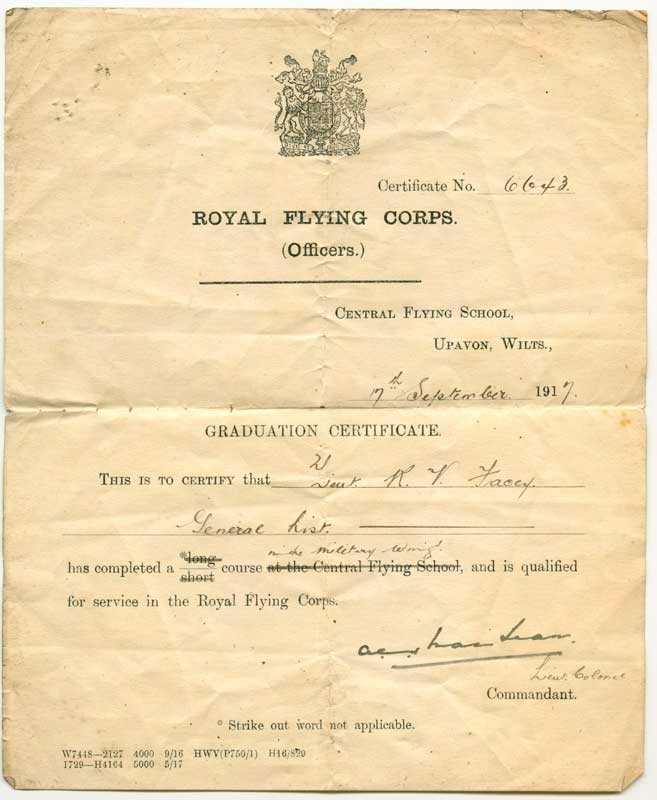 Certificate No. 6643.
ROYAL FLYING CORPS.
(Officers.)
CENTRAL FLYING SCHOOL,
UPAVON, WILTS.,
17th September. 1917.
GRADUATION CERTIFICATE.
THIS IS TO CERTIFY that 2/Lieut R. V. Facey.
General List.
in the Military Wing.
has completed a *long short course at the Central Flying School, and is qualified
for service in the Royal Flying Corps.
Lieut. Colonel
Commandant.
* Strike out word not applicable.
W7448—2127 4000 9/16 HWV(P750/1) H16/829
1729—H4164 5000 5/17